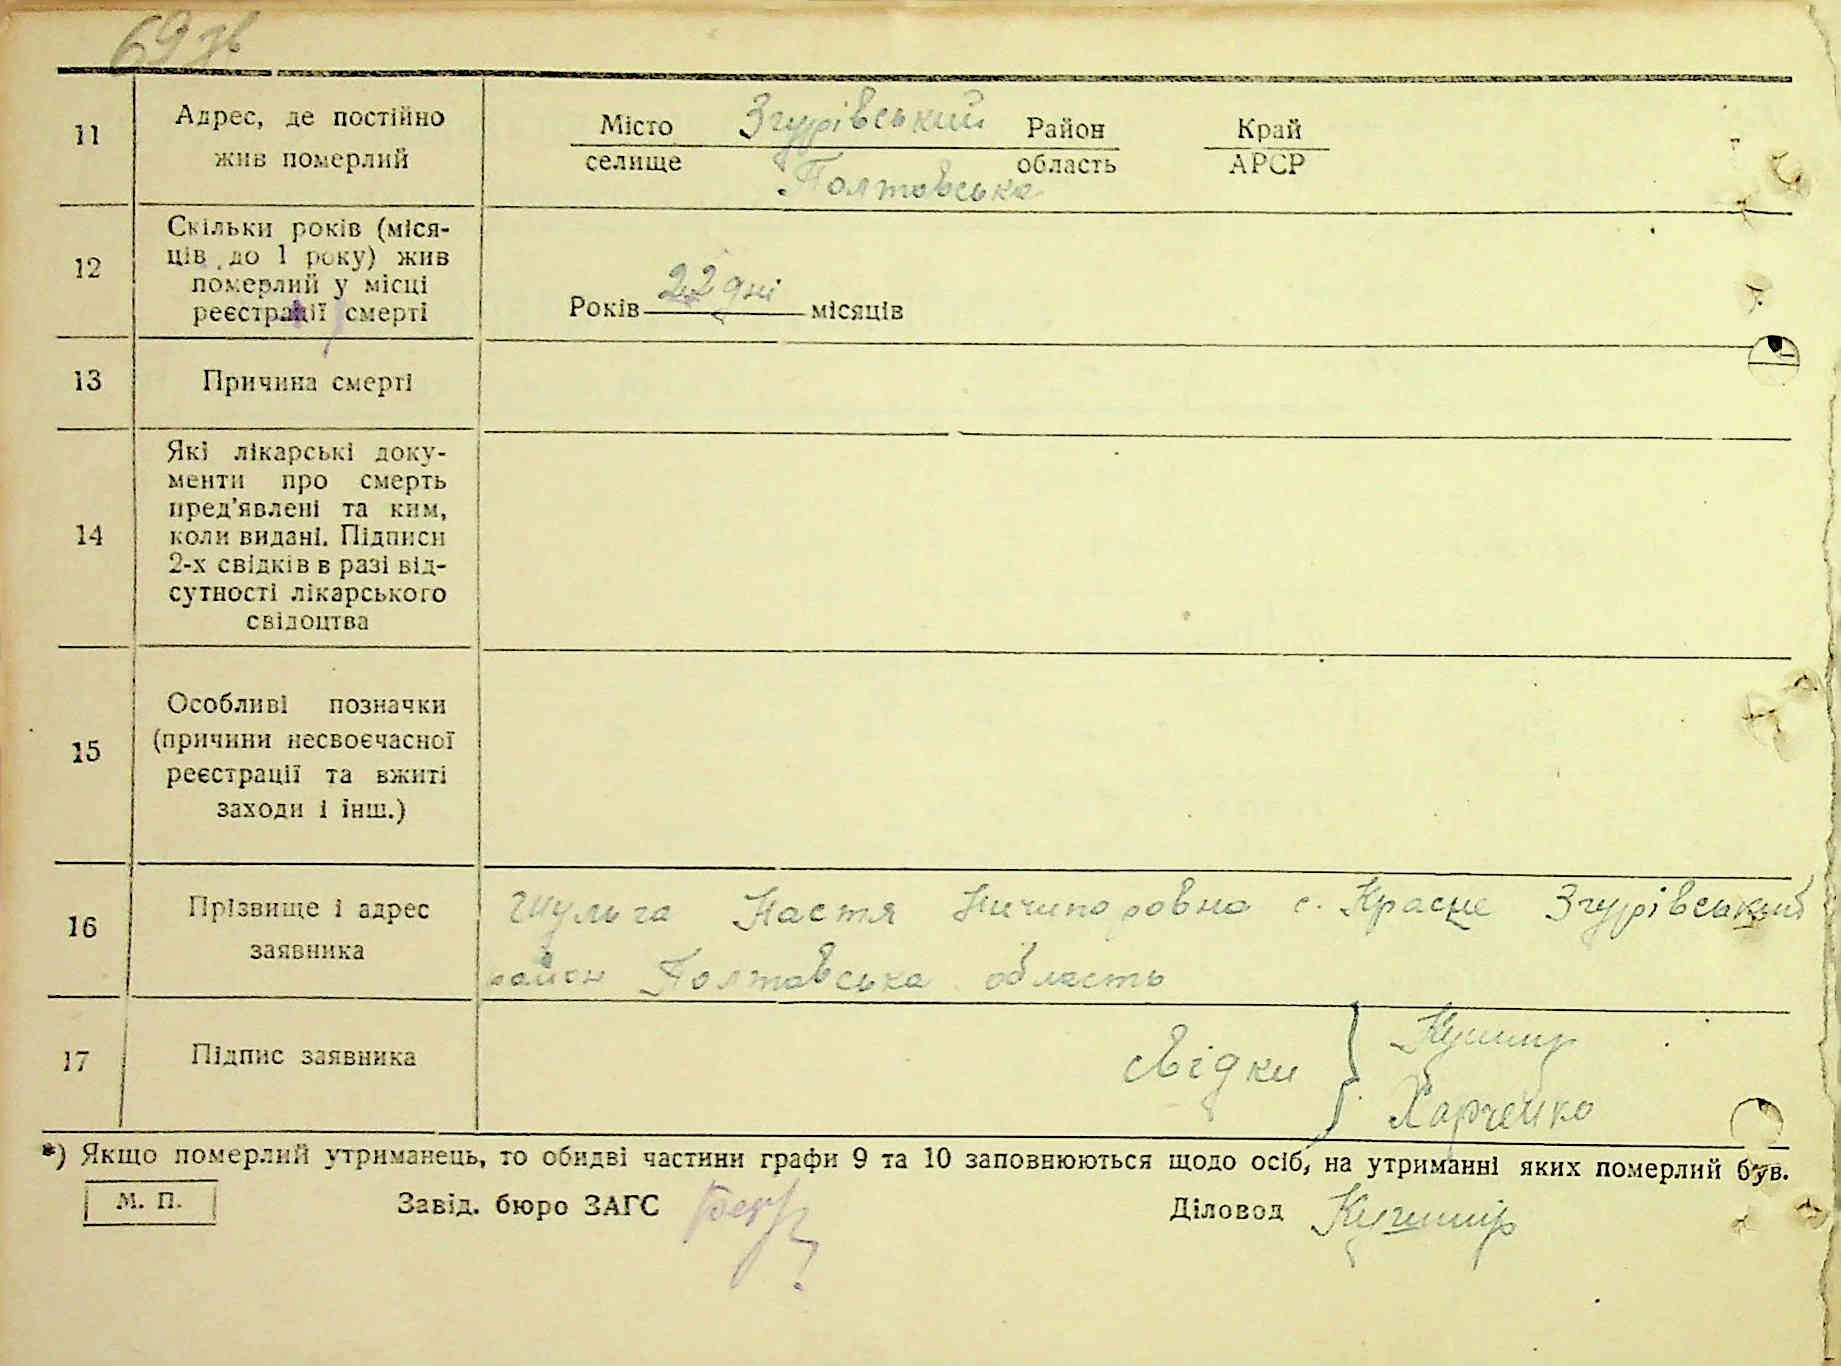 69 зв
11 Адрес, де постійно жив померлий
Місто Згурівський Район Край
селище Полтавська область АРСР
12 Скільки років (міся-
ців до 1 року) жив
померлий у місці
реєстрації смерті
Років 22 дні місяців
13 Причина смерті
14 Які лікарські доку-
менти про смерть
пред'явлені та ким,
коли видані. Підписи
2-х свідків в разі від-
сутності лікарського
свідоцтва
15 Особливі позначки
(причини несвоєчасної
реєстрації та вжиті
заходи і інш.)
16 Прізвище і адрес
заявника
Шульга Настя Ничипоровна с. Красне Згурівський
район Полтавська область
17 Підпис заявника
свідки Кушнір
Харченко
*) Якщо померлий утриманець, то обидві частини графи 9 та 10 заповнюються щодо осіб, на утриманні яких померлий був.
М. П. Завід. бюро ЗАГС Діловод Кушнір